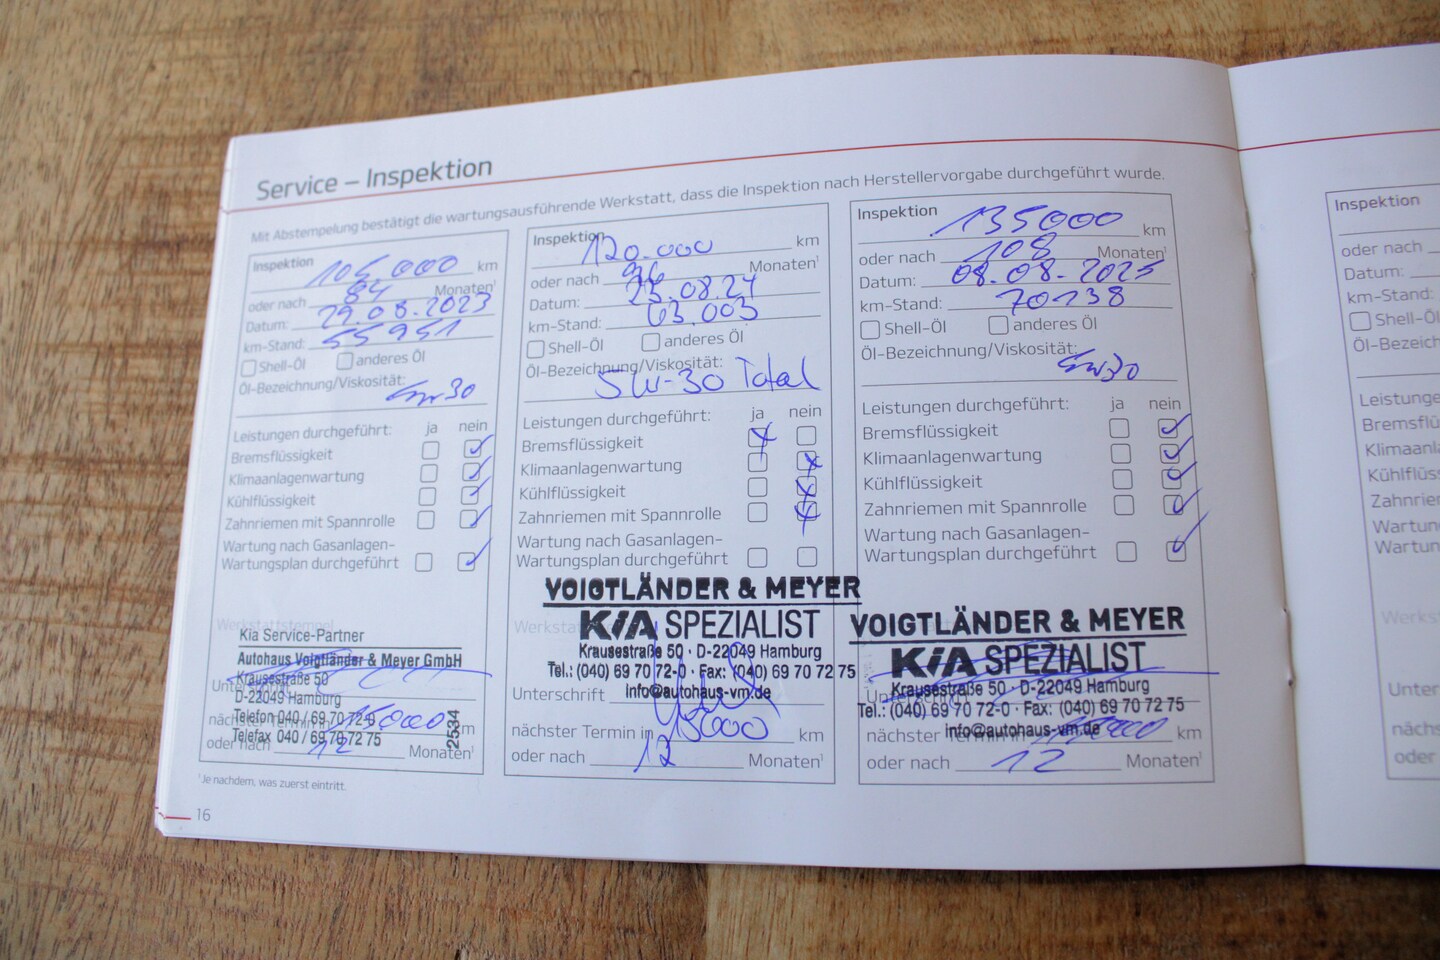 Service – Inspektion
Mit Abstempelung bestätigt die wartungsausführende Werkstatt, dass die Inspektion nach Herstellervorgabe durchgeführt wurde.
Inspektion 105.000 km
oder nach 84 Monaten¹
Datum: 29.08.2023
km-Stand: 55951
Shell-Öl anderes Öl
Öl-Bezeichnung/Viskosität:
5w30
Leistungen durchgeführt: ja nein
Bremsflüssigkeit
Klimaanlagenwartung
Kühlflüssigkeit
Zahnriemen mit Spannrolle
Wartung nach Gasanlagen-
Wartungsplan durchgeführt
Werkstattstempel
Kia Service-Partner
Autohaus Voigtländer & Meyer GmbH
Krausestraße 50
D-22049 Hamburg
Telefon 040 / 69 70 72-0
Telefax 040 / 69 70 72 75
2534
nächster Termin in 15000 km
oder nach 12 Monaten¹
¹Je nachdem, was zuerst eintritt.
16
Inspektion 120.000 km
oder nach 96 Monaten¹
Datum: 23.08.24
km-Stand: 63.003
Shell-Öl anderes Öl
Öl-Bezeichnung/Viskosität:
5W-30 Total
Leistungen durchgeführt: ja nein
Bremsflüssigkeit
Klimaanlagenwartung
Kühlflüssigkeit
Zahnriemen mit Spannrolle
Wartung nach Gasanlagen-
Wartungsplan durchgeführt
VOIGTLÄNDER & MEYER
KIA SPEZIALIST
Krausestraße 50 · D-22049 Hamburg
Tel.: (040) 69 70 72-0 · Fax: (040) 69 70 72 75
info@autohaus-vm.de
Unterschrift
nächster Termin in 15000 km
oder nach 12 Monaten¹
Inspektion 135000 km
oder nach 108 Monaten¹
Datum: 08.08.2025
km-Stand: 70138
Shell-Öl anderes Öl
Öl-Bezeichnung/Viskosität:
5w30
Leistungen durchgeführt: ja nein
Bremsflüssigkeit
Klimaanlagenwartung
Kühlflüssigkeit
Zahnriemen mit Spannrolle
Wartung nach Gasanlagen-
Wartungsplan durchgeführt
VOIGTLÄNDER & MEYER
KIA SPEZIALIST
Krausestraße 50 · D-22049 Hamburg
Tel.: (040) 69 70 72-0 · Fax: (040) 69 70 72 75
info@autohaus-vm.de
nächster Termin in km
oder nach 12 Monaten¹
Inspektion
oder nach
Datum:
km-Stand:
Shell-Öl
Öl-Bezeich
Leistunge
Bremsflü
Klimaanl
Kühlflüs
Zahnrie
Wartun
Wartun
Werks
Unter
nächs
oder